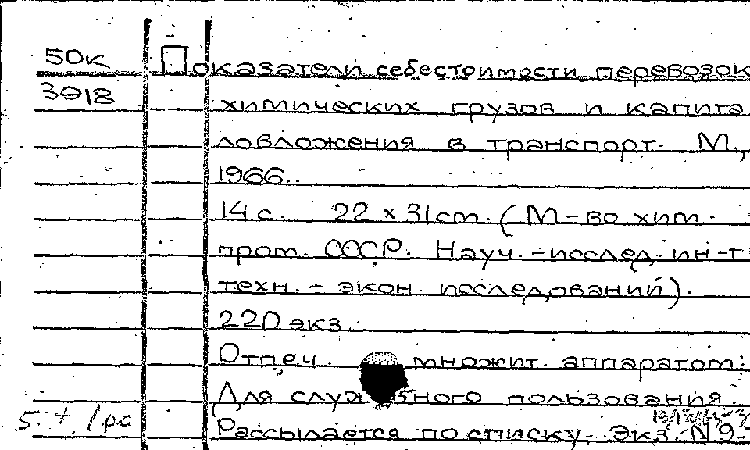 50к Показатели себестоимости перевозок
3918 химических грузов и капита
ловложения в транспорт. М.,
1966.
14 с. 22 x 31 cm. (М-во хим.
пром. СССР. Науч.-исслед. ин-т
техн.-экон. исследований).
220 экз.
Отпеч. множит. аппаратом.
Для служебного пользования.
Рассылается по списку. Экз. №9